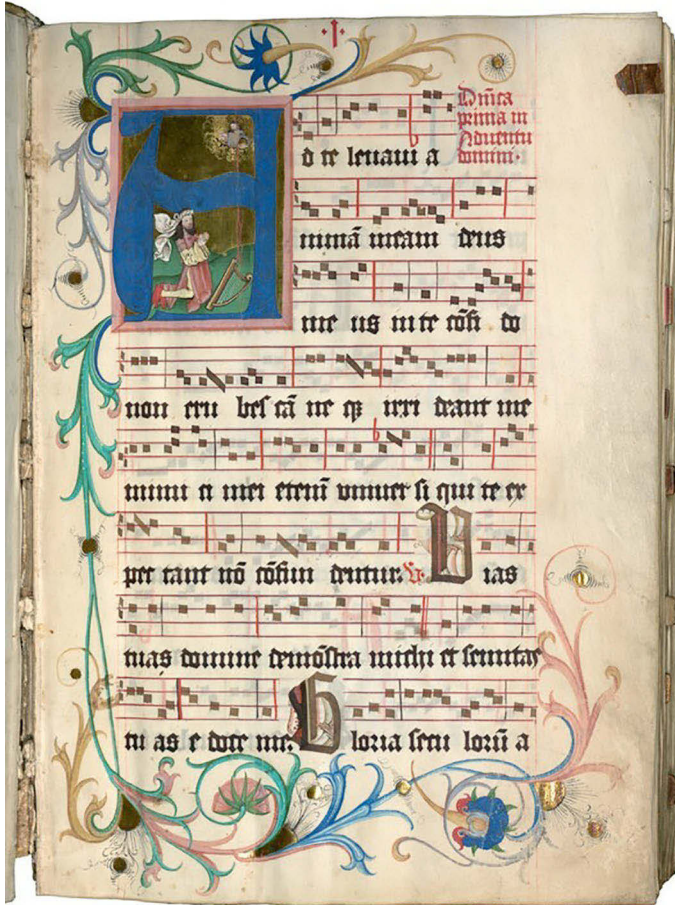 ·I·
Dn̄ica
prima in
Aduentu
domini.
Ad te leuaui a
nimā meam deus
me us in te cōfi do
non eru bes cā ne qȝ irri deant me
inimi ci mei etenī vniuer si qui te ex
pec tant nō cōfun dentur. V. Uias
tuas domine demōstra michi et semitas
tu as e doce me. Gloria secu lorū a